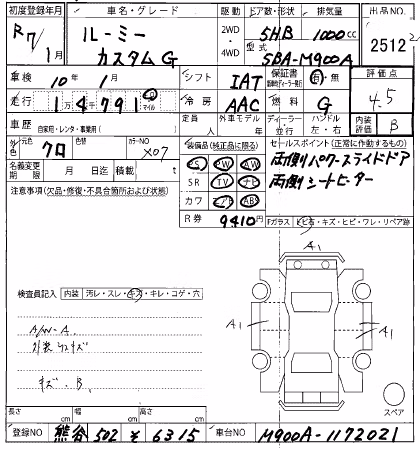 初度登録年月 車名・グレード 駆動 ドア数・形状 排気量 出品NO.
R7/1月 ルーミー カスタムG 2WD・4WD 5HB 1000cc 2512
型式 5BA-M900A
車検 10年 1月 シフト IAT 保証書 有・無 評価点
走行 1万4791 km マイル 冷房 AAC 燃料 G 4.5
車歴 自家用・レンタ・事業用( ) 定員 人 外車モデル 年 ディーラー・並行 ハンドル 左・右 内装評価 B
外色 元色 クロ 色替 カラーNO X07 装備品(純正品に限る) セールスポイント(正常に作動するもの)
PS PW AW 両側パワースライドドア
名義変更期限 月 日迄 積載 t SR TV ナビ 両側シートヒーター
注意事項(欠品・修復・不具合箇所および状態) カワ エアB ABS
R券 9410円 Fガラス トビ石・キズ・ヒビ・ワレ・リペア跡
A1
検査員記入 内装 汚レ・スレ・キズ・キレ・コゲ・穴
A/W-A
A1 A1
外装リスキズ
キズ・B
スペア
長さ cm 幅 cm 高さ cm
登録NO 熊谷 502 す 6315 車台NO M900A-1172021